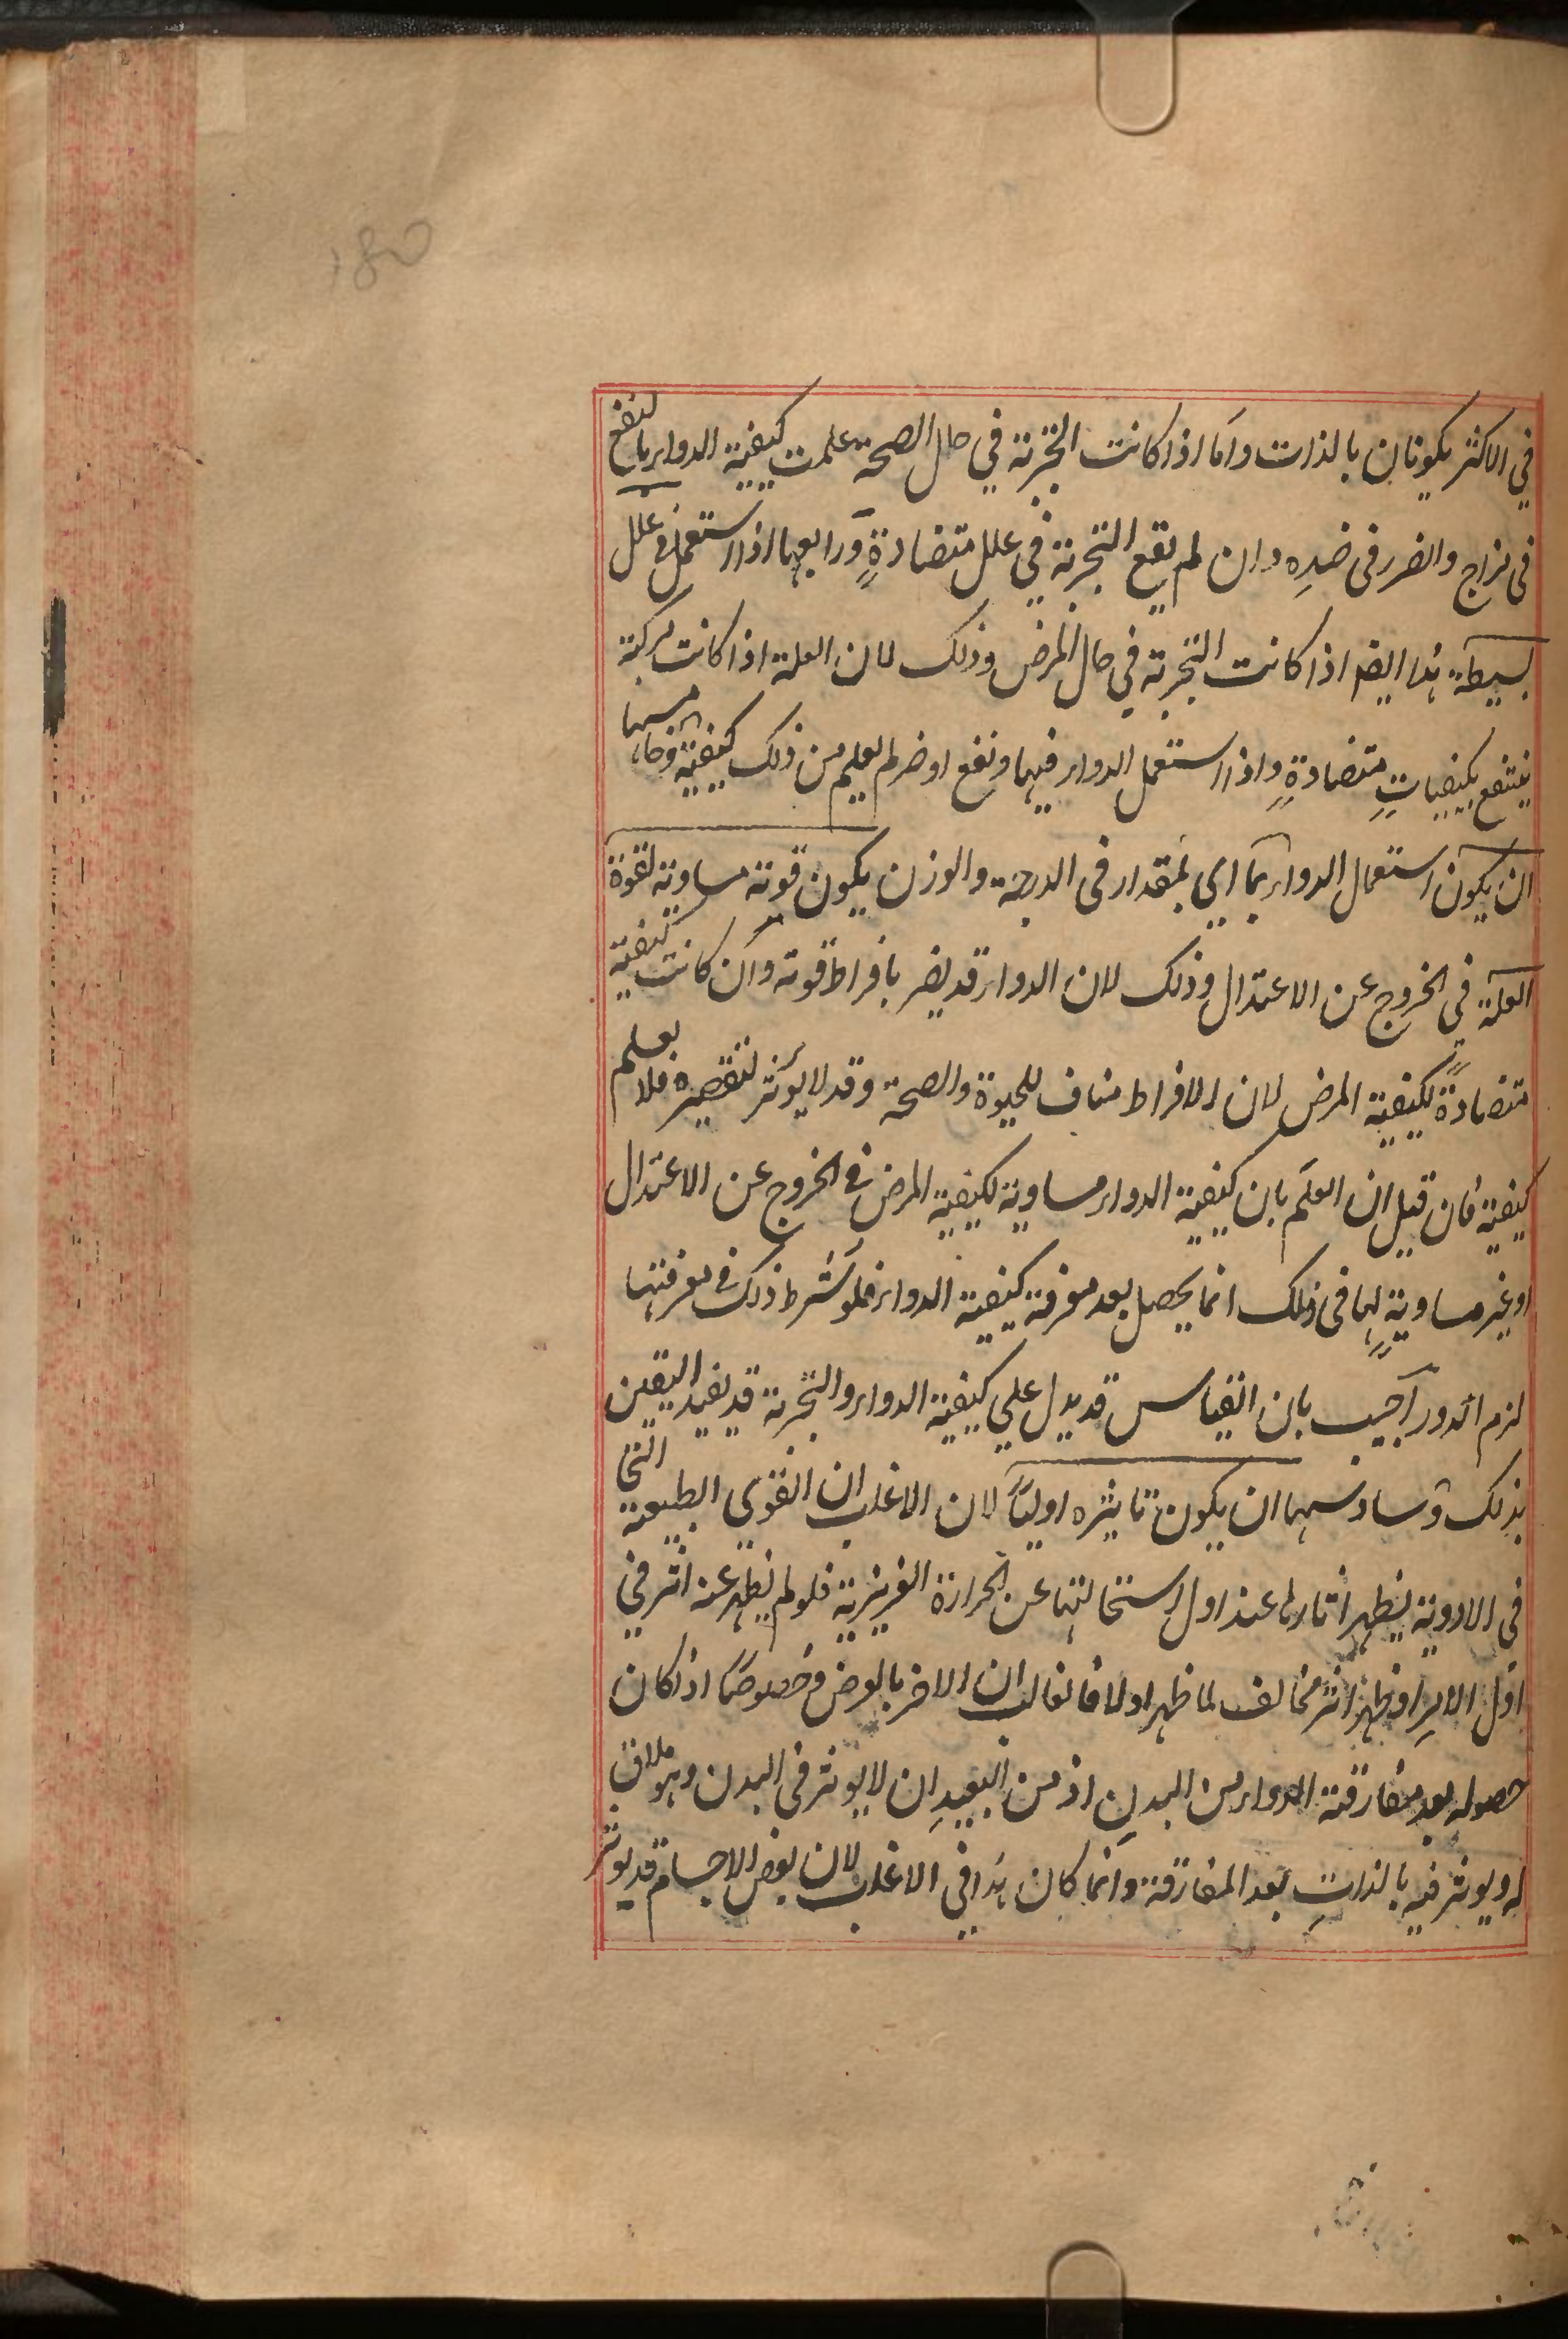 180
في الاكثر يكونان بالذات واما اذا كانت التجربة في حال الصحة علمت كيفية الدواء بالنفع
في مزاج والضرر في ضده وان لم يقع التجربة في علل متضادة ورابعها اذا استعمل في علل
بسيطة هذا ايضا اذا كانت التجربة في حال المرض وذلك لان العلة اذا كانت مركبة
ينتفع بكيفيات متضادة واذا استعمل الدواء فيها ونفع او ضر لم يعلم من ذلك كيفيته وخامسها
ان يكون استعمال الدواء بما اي بمقدار في الدرجة والوزن يكون قوته مساوية لقوة
العلة في الخروج عن الاعتدال وذلك لان الدواء قد يضر بافراط قوته وان كانت كيفية
متضادة لكيفية المرض لان الافراط مناف للحيوة والصحة وقد لا يؤثر لتقصيره فلا يعلم
كيفية فان قيل ان العلم بان كيفية الدواء مساوية لكيفية المرض في الخروج عن الاعتدال
او غير مساوية لها في ذلك انما يحصل بعد معرفة كيفية الدواء فلو شرط ذلك في معرفتها
لزم الدور اجيب بان القياس قد يدل علي كيفية الدواء والتجربة قد يفيد اليقين
بذلك وسادسها ان يكون تاثيره اوليا لان الاغلب ان القوي الطبيعية التي
في الادوية يظهر اثارها عند اول استحالتها عن الحرارة الغريزية فلو لم يظهر عنه اثر في
اول الامر او ظهر اثر مخالف لما ظهر اولا فالغالب ان الاخر بالعرض وخصوصا اذا كان
حصوله بعد مفارقة الدواء من البدن اذ من البعيد ان لا يوثر في البدن وهو ملاق
له ويوثر فيه بالذات بعد المفارقة وانما كان هذا في الاغلب لان بعض الاجسام قد يوثر